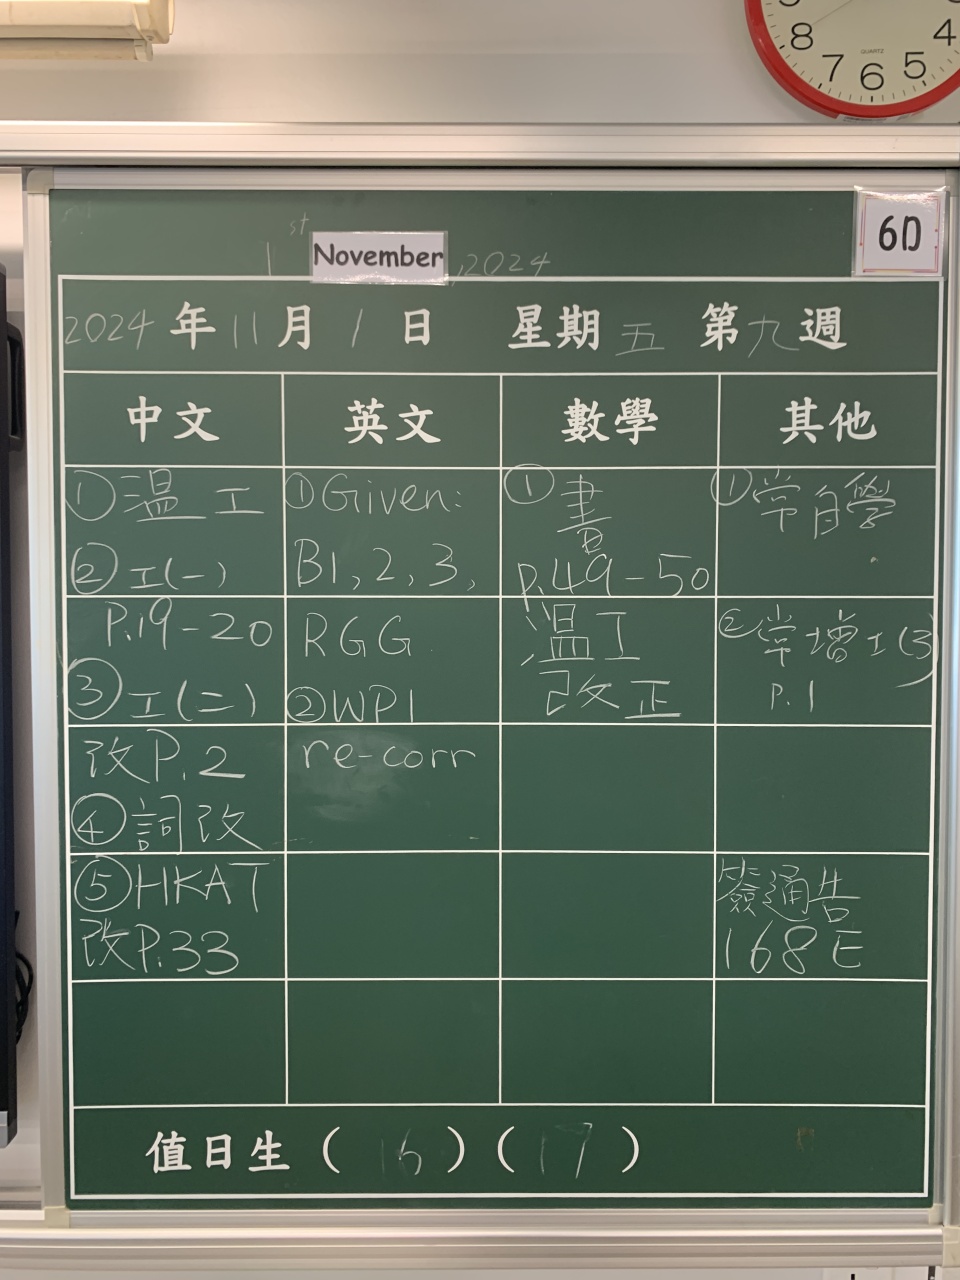 8 7 6 5 4
QUARTZ
6D
1st November, 2024
2024年11月1日 星期五 第九週
中文 英文 數學 其他
①溫工
②工(一)
P.19-20
③工(二)
改P.2
④詞改
⑤HKAT
改P.33
①Given:
B1,2,3,
RGG
②WP1
re-corr
①書
P.49-50
溫工
改正
①常自學
②常增工(3)
P.1
簽通告
168E
值日生(16)(17)